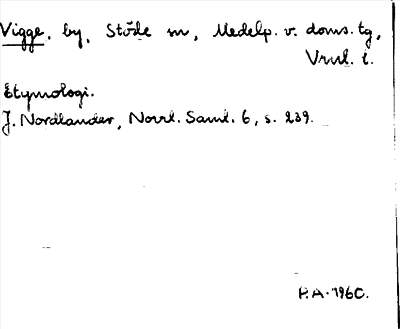 Vigge, by, Stöde sn, Medelp. v. doms. tg,
Vrnl. l.
Etymologi.
J. Nordlander, Norrl. Saml. 6, s. 239.
P.A. 1960.